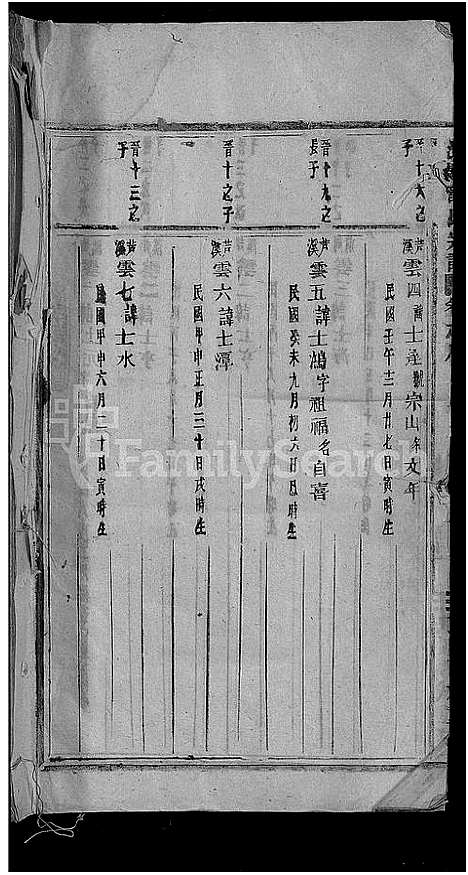 晉十六之
子
黃溪 雲四諱士逢號宗山名文年
民國壬午十二月廿七日寅時生
晉十九之
長子
黃溪 雲五諱士鴻字祖福名自喜
民國癸未九月初六日巳時生
晉十之子
黃溪 雲六諱士潭
民國甲申正月二十日戌時生
晉十三之
子
黃溪 雲七諱士水
民國甲申六月二十日寅時生
FamilySearch